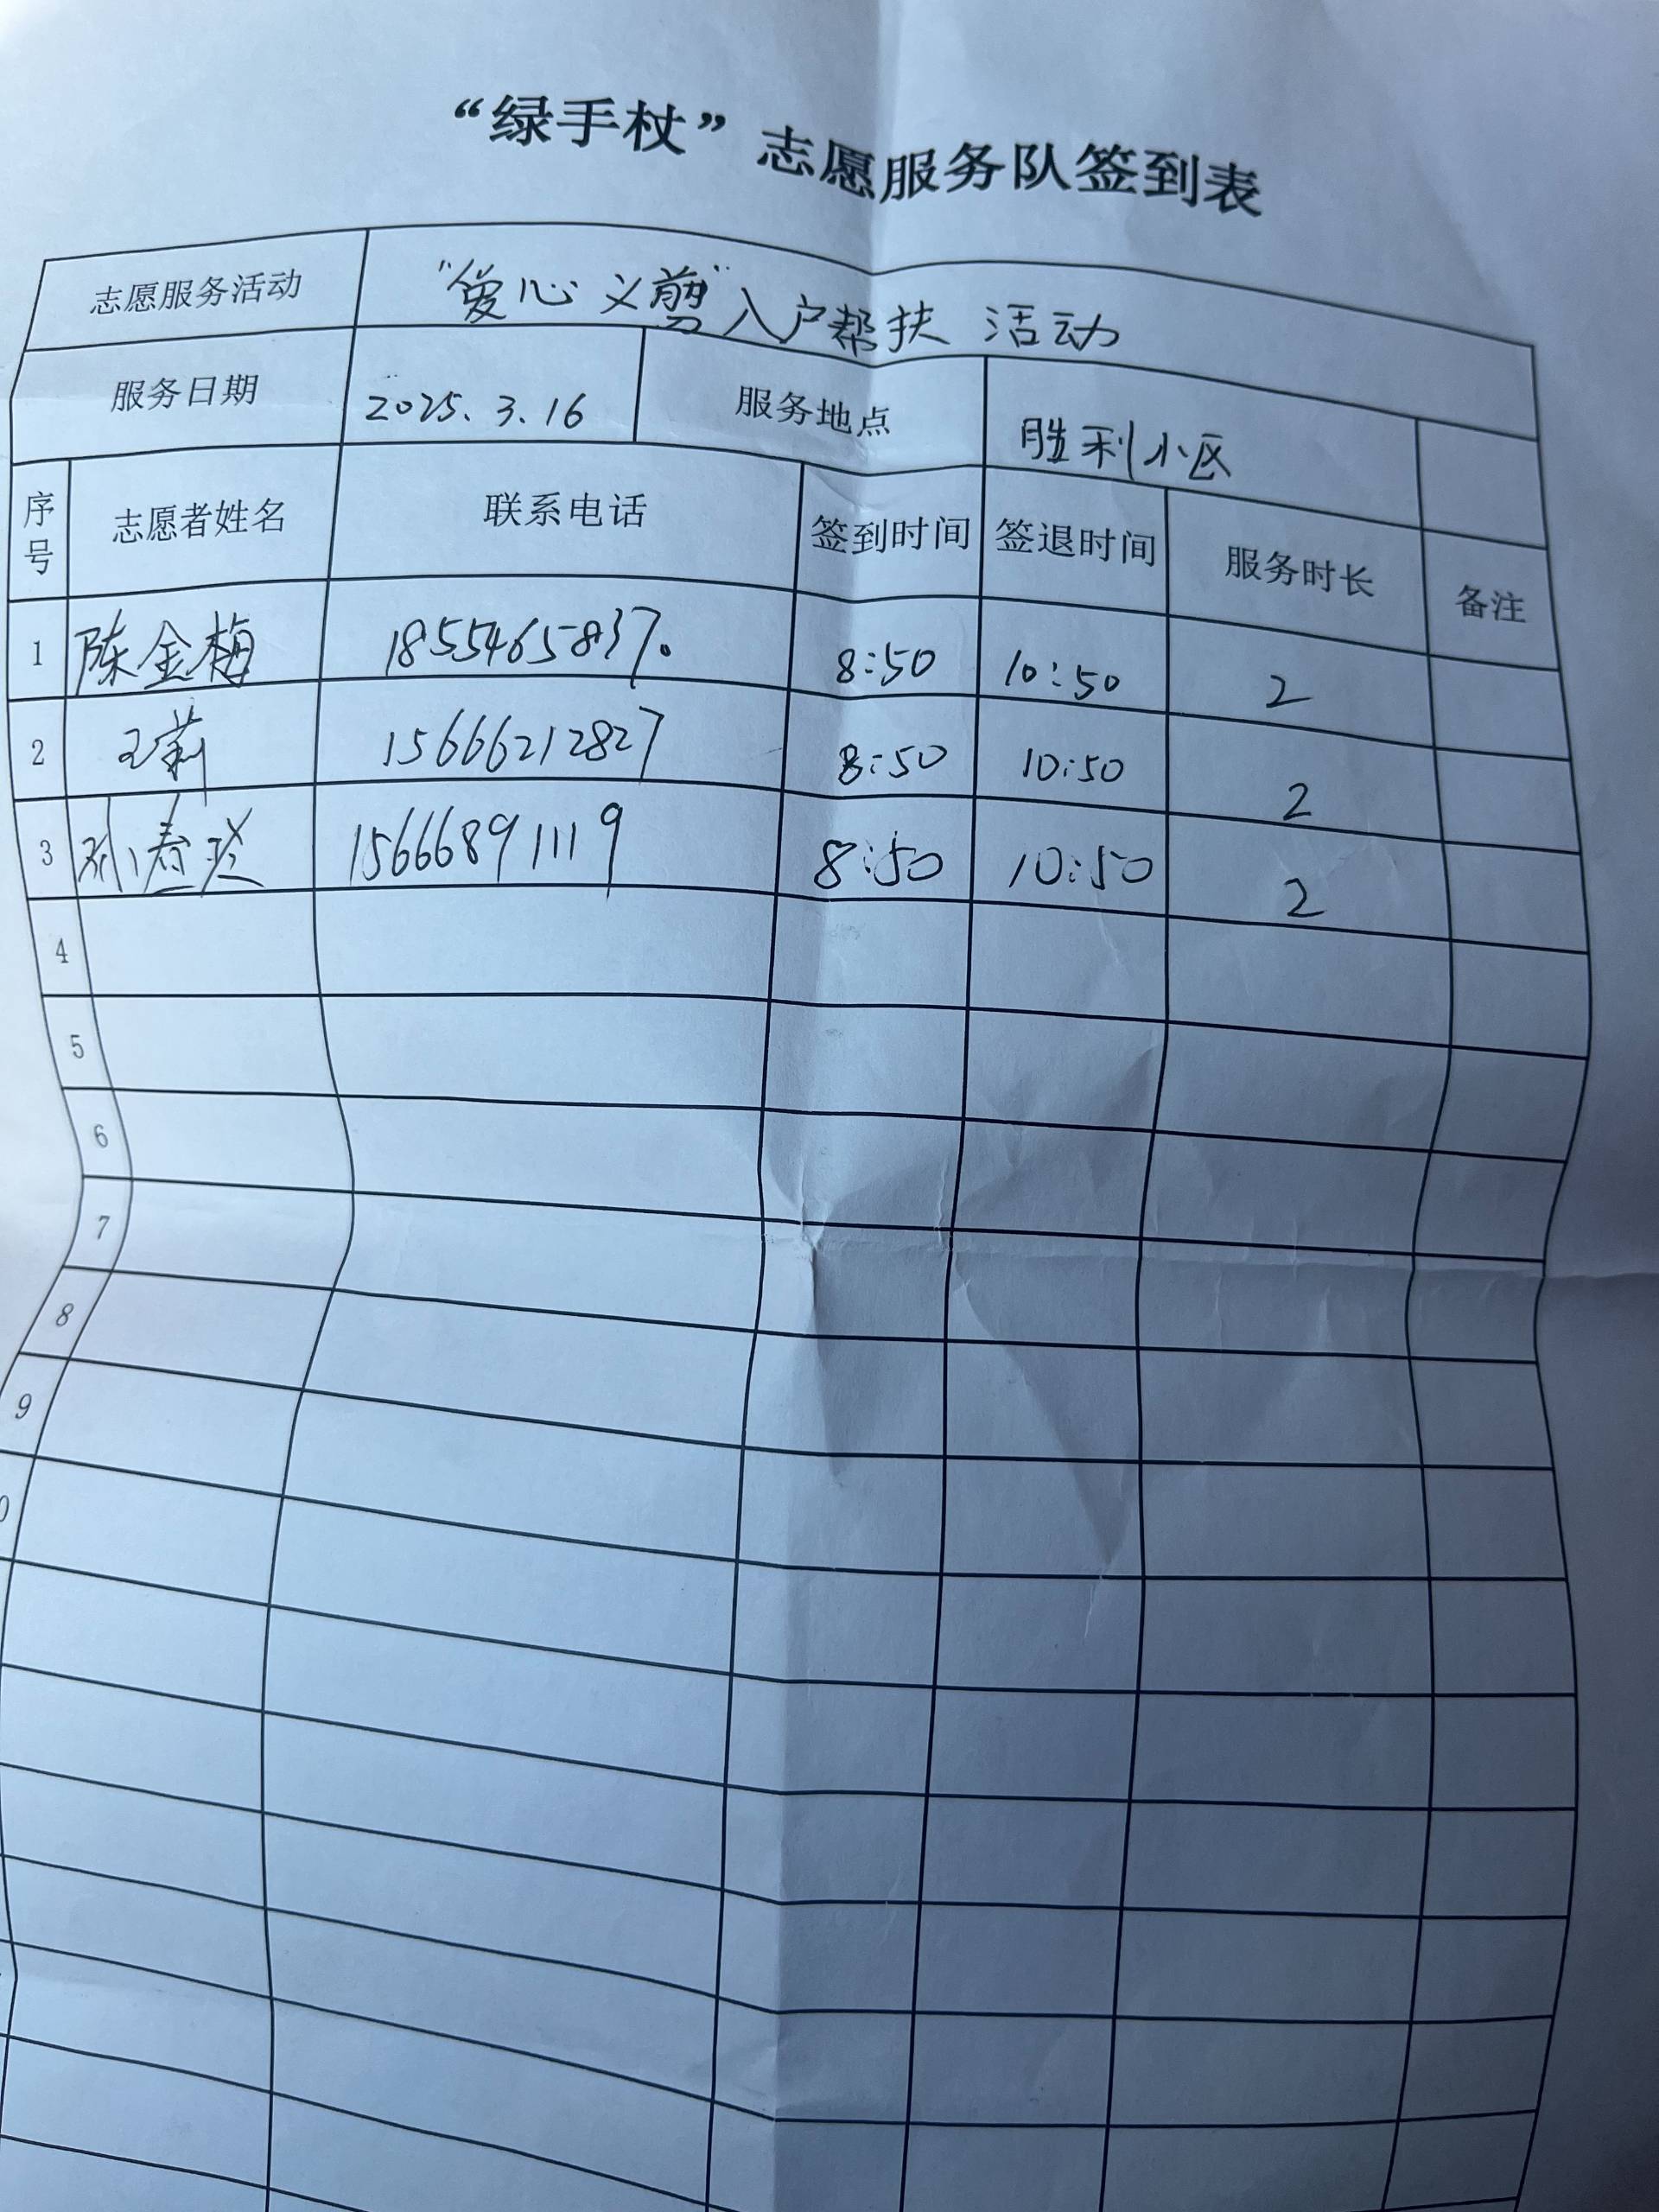 “绿手杖”志愿服务队签到表
志愿服务活动 “爱心义剪”入户帮扶 活动
服务日期 2025.3.16 服务地点 胜利小区
序号 志愿者姓名 联系电话 签到时间 签退时间 服务时长 备注
1 陈金梅 18554658370 8:50 10:50 2
2 王莉 15666212827 8:50 10:50 2
3 孙春玲 15666891119 8:50 10:50 2
4
5
6
7
8
9
0